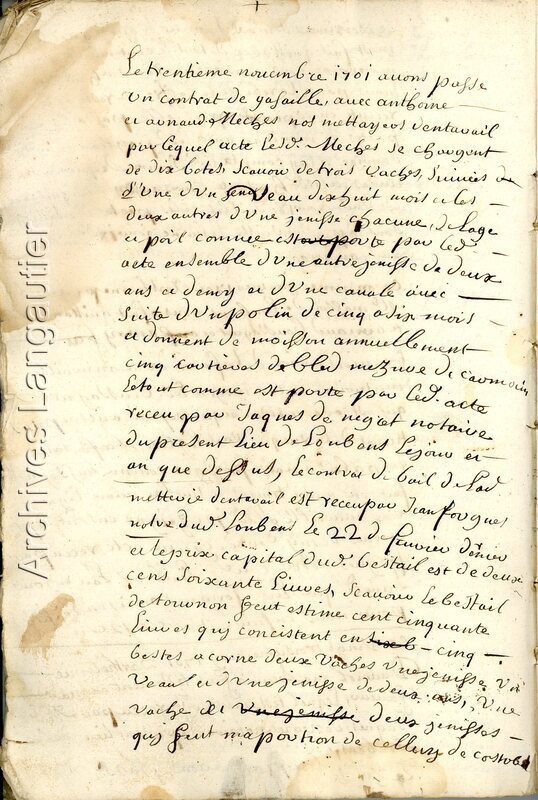 Le trentieme novembre 1701 avons passe
un contrat de gasaille, avec anthoine
et arnaud Meches nos mettayers dentavail
par lequel acte lesd. Meches se chargent
de dix betes, scavoir de trois vaches, suivies
d'une d'un veau dix huit mois et les
deux autres d'une jenisse chacune, de lage
et poil comme est porte par led.
acte ensemble d'une autre jenisse de deux
ans et demy et d'une cavale avec
suite d'un polin de cinq a six mois
et donnent de moisson annuellement
cinq cartieres de bled mezure de caraman
le tout comme est porte par led. acte
receu par Jaques de negret notaire
du present lieu de Loubens le jour et
an que dessus, le contrat de bail de lad.
metterie dentavail est receu par Jean fourques
notre dud. Loubens le 22 d fevrier dernier
et le prix capital dud. bestail est de deux
cens soixante livres, scavoir le bestail
de tournon feut estime cent cinquante
livres quy concistent en cinq
bestes a corne deux vaches une jenisse un
veau et d'une jenisse de deux ans, une
vache et une jenisse deux jenisses
quy feut ma portion de celluy de
Archives Langautier